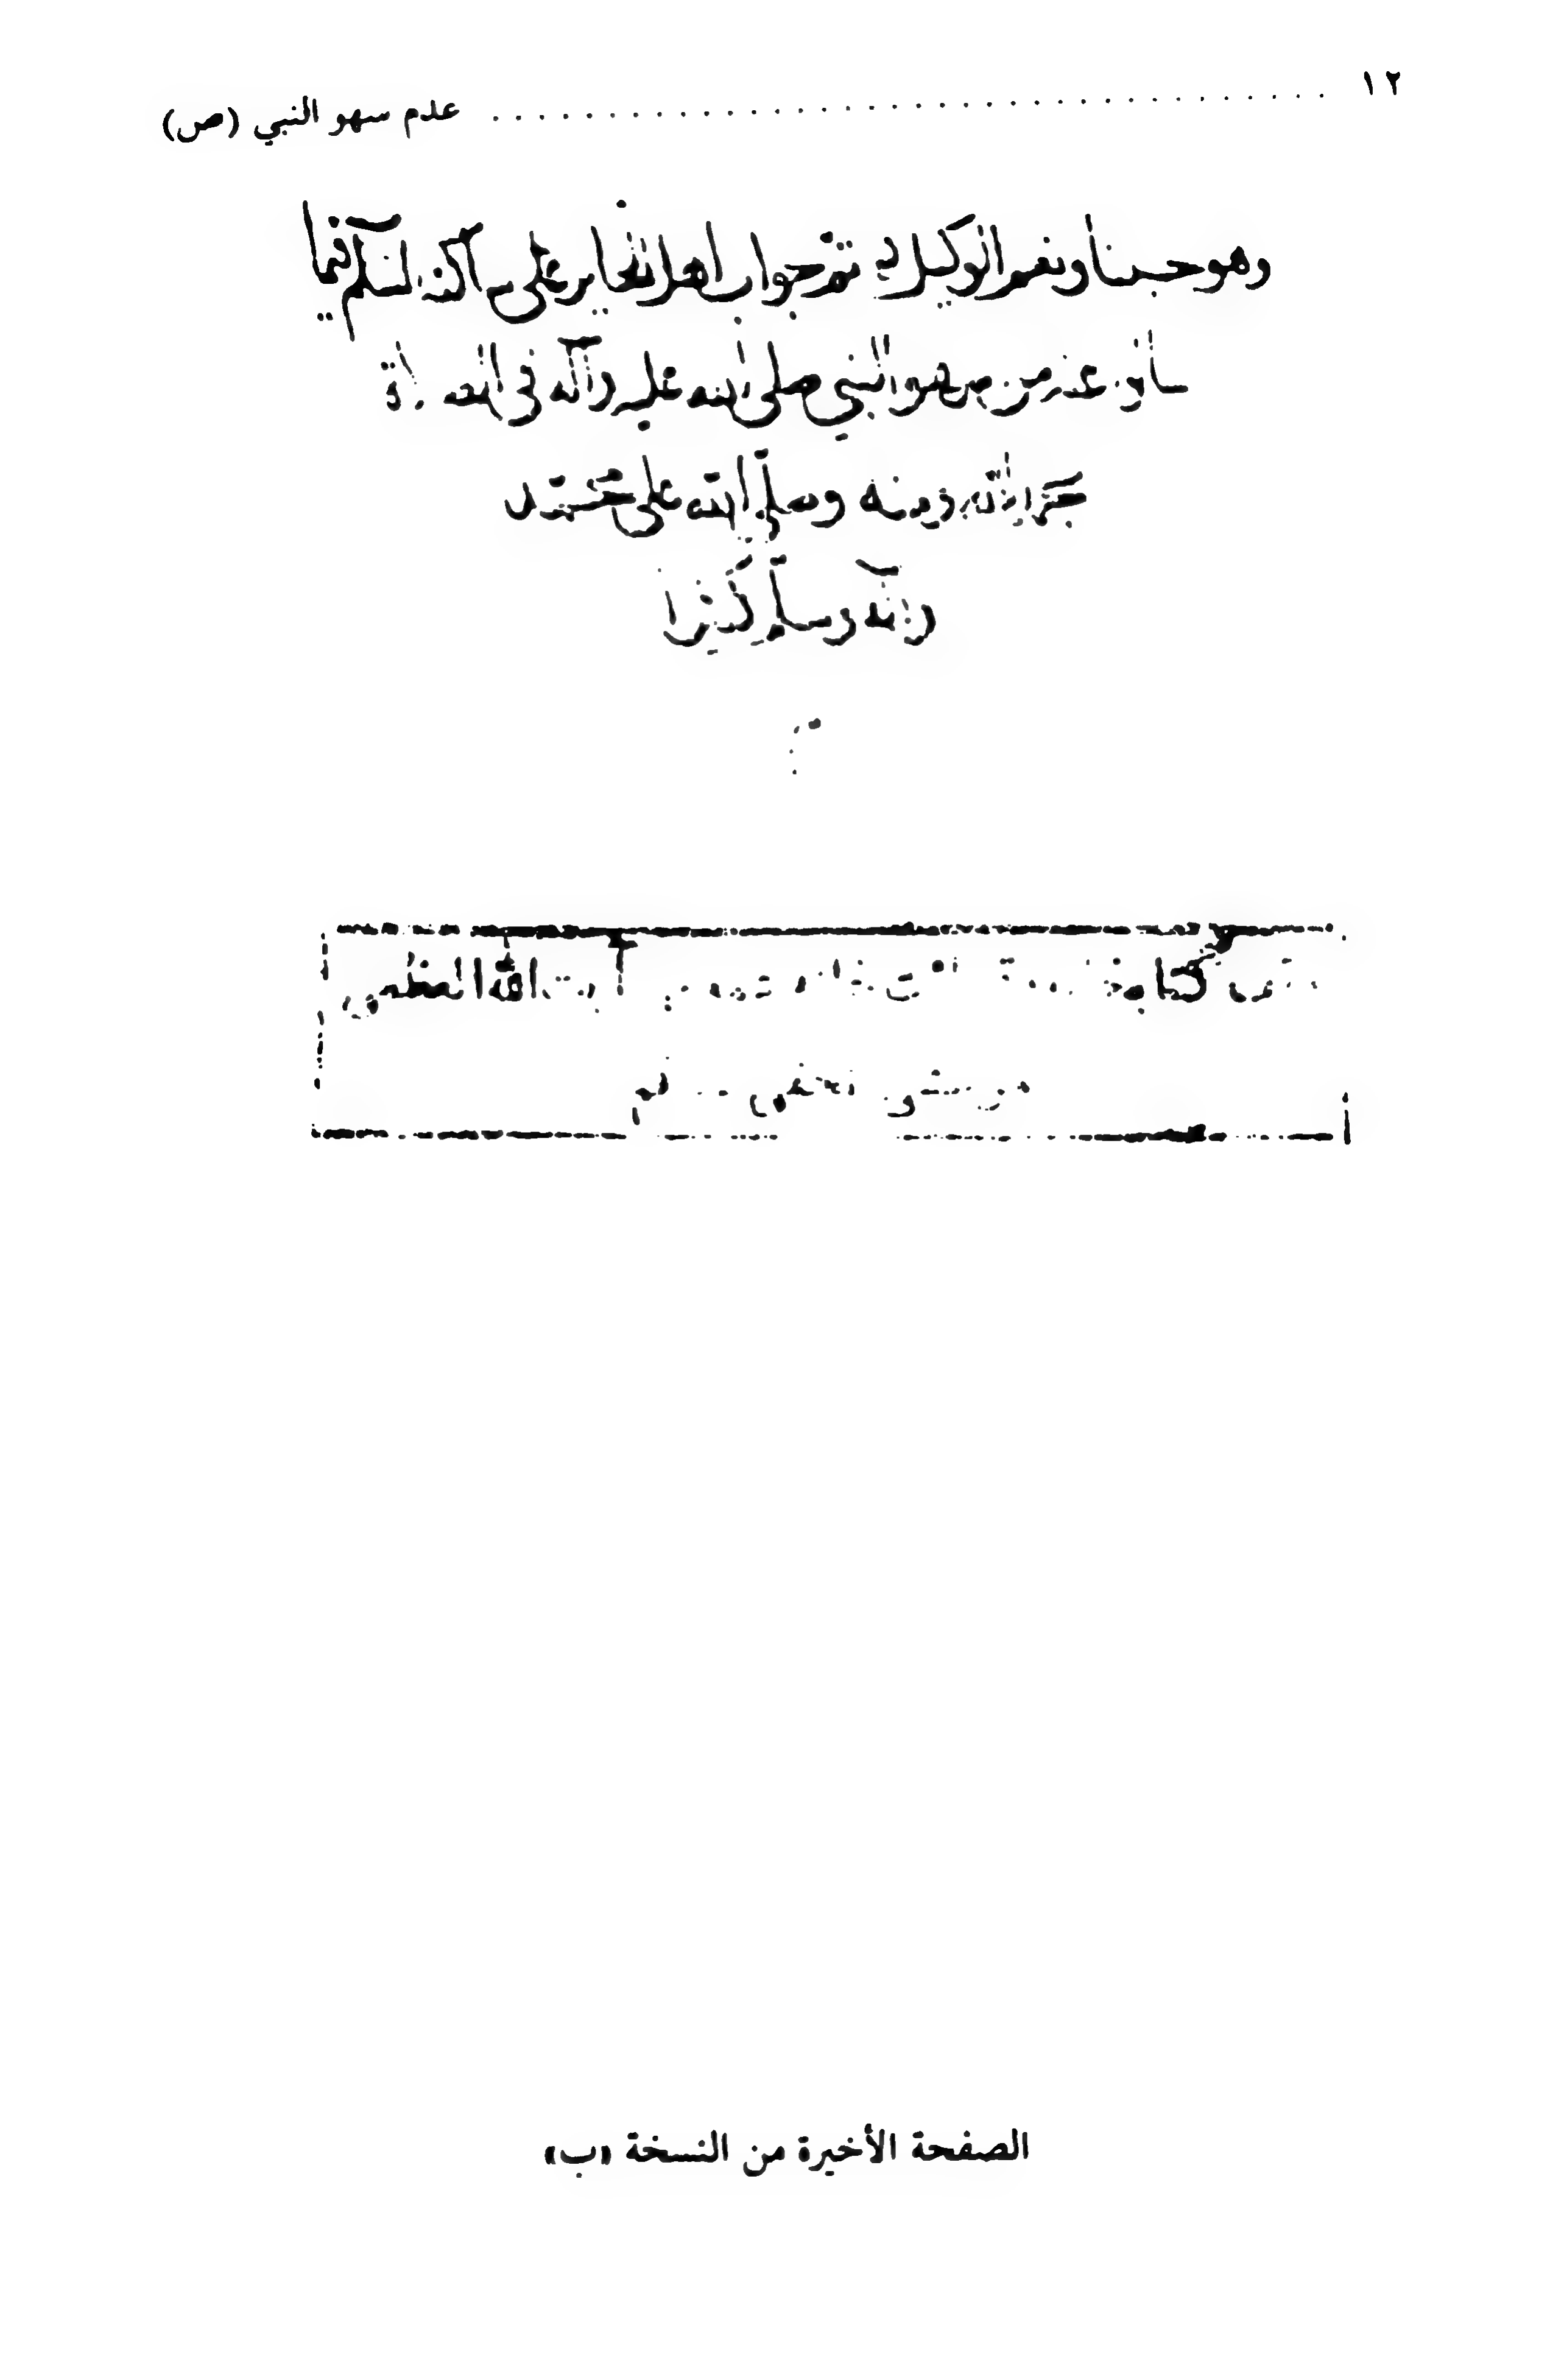 ١٢ .................................... عدم سهو النبي (ص)
وهو حسبنا ونعم الوكيل تم جواب اهل الحاير على ساكنه السلم فيما
سألوا عنه من سهو النبي صلى الله عليه وآله في الصلاة
بحمد الله ومنه وصلى الله على محمد
وآله وسلم كثيرا
كتابخانه آيت الله العظمى
مرعشي نجفي قم
الصفحة الأخيرة من النسخة «ب»